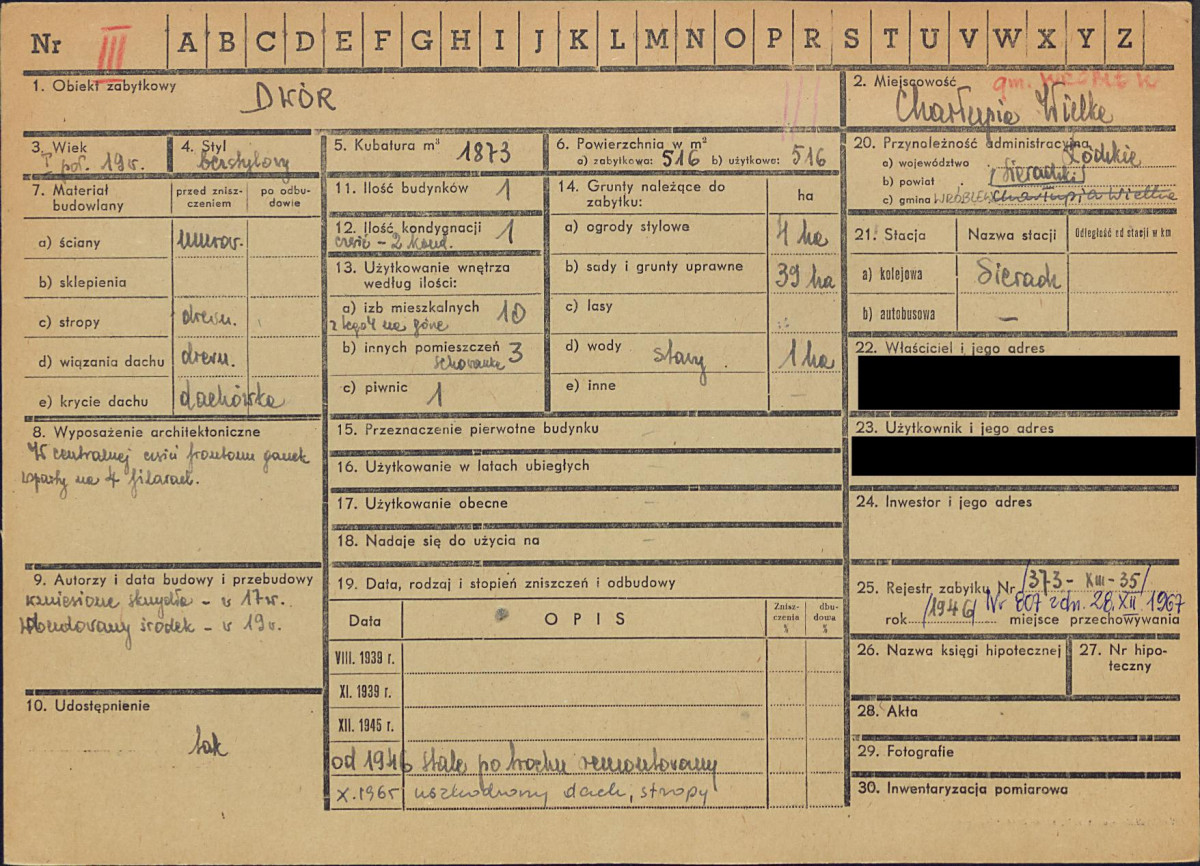 Nr III A B C D E F G H I J K L M N O P R S T U V W X Y Z
1. Obiekt zabytkowy
DWÓR
2. Miejscowość
gm. WRÓBLEW
Charłupia Wielka
3. Wiek
I poł. 19 w.
4. Styl
bezstylowy
5. Kubatura m³ 1873
6. Powierzchnia w m²
a) zabytkowa: 516 b) użytkowe: 516
7. Materiał budowlany
przed zniszczeniem
po odbudowie
a) ściany murow.
b) sklepienia
c) stropy drewn.
d) wiązania dachu drewn.
e) krycie dachu dachówka
8. Wyposażenie architektoniczne
W centralnej części frontonu ganek
wsparty na 4 filarach.
9. Autorzy i data budowy i przebudowy
wzniesione skrzydła - w 17 w.
wbudowany środek - w 19 w.
10. Udostępnienie
tak
11. Ilość budynków 1
12. Ilość kondygnacji 1
część - 2 kond.
13. Użytkowanie wnętrza
według ilości:
a) izb mieszkalnych 10
z tego 4 na górze
b) innych pomieszczeń 3
c) piwnic 1
14. Grunty należące do
zabytku: ha
a) ogrody stylowe 4 ha
b) sady i grunty uprawne 39 ha
c) lasy
d) wody stawy 1 ha
e) inne –
15. Przeznaczenie pierwotne budynku –
16. Użytkowanie w latach ubiegłych –
17. Użytkowanie obecne –
18. Nadaje się do użycia na –
19. Data, rodzaj i stopień zniszczeń i odbudowy
Data
OPIS
Zniszczenia %
dbudowa %
VIII. 1939 r.
XI. 1939 r.
XII. 1945 r.
od 1946 stale po trochu remontowany
X.1965 uszkodzony dach, stropy
20. Przynależność administracyjna
a) województwo Łódzkie
b) powiat Sieradzki
c) gmina WRÓBLEW Charłupia Wielka
21. Stacja
Nazwa stacji
Odległość od stacji w km
a) kolejowa Sieradz
b) autobusowa –
22. Właściciel i jego adres
23. Użytkownik i jego adres
24. Inwestor i jego adres
25. Rejestr zabytku Nr /373-XIII-35/
rok /1946/ Nr 807 z dn. 28.XII 1967
miejsce przechowywania
26. Nazwa księgi hipotecznej
27. Nr hipoteczny
28. Akta
29. Fotografie
30. Inwentaryzacja pomiarowa